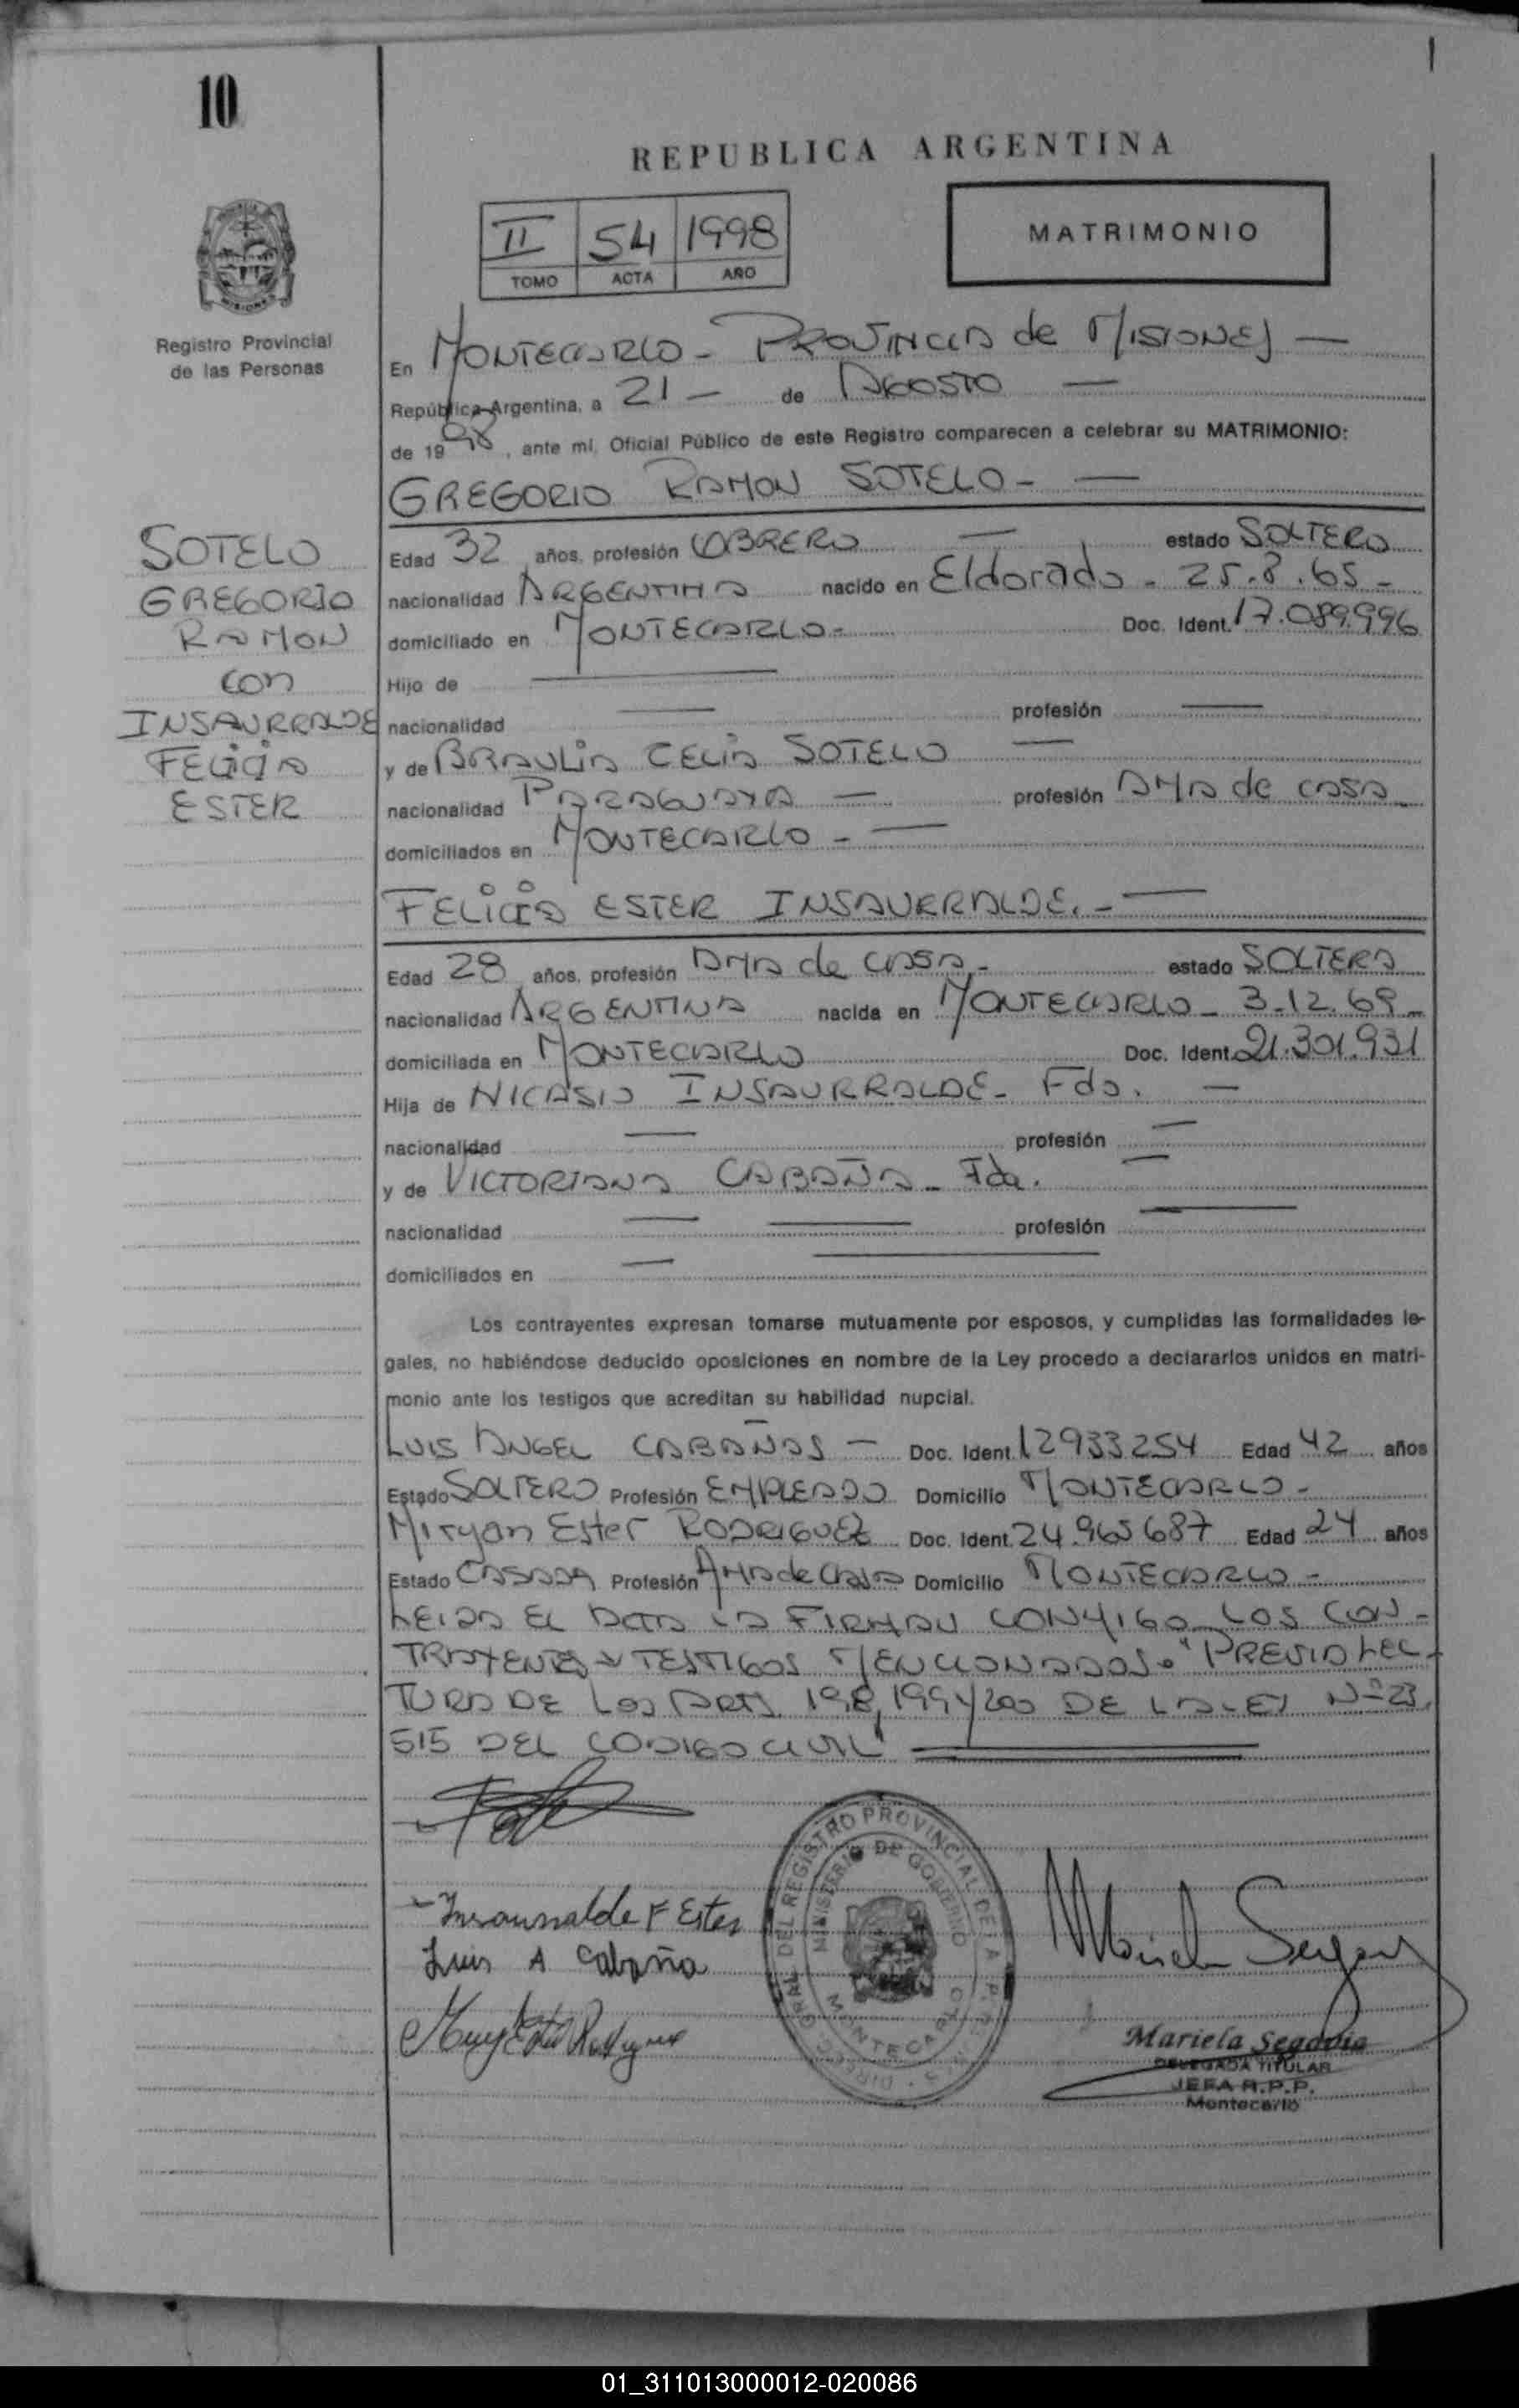 10
REPUBLICA ARGENTINA
II 54 1998
TOMO ACTA AÑO
MATRIMONIO
Registro Provincial
de las Personas
En MONTECARLO - PROVINCIA de MISIONES —
República Argentina, a 21 — de AGOSTO —
de 1998, ante mí, Oficial Público de este Registro comparecen a celebrar su MATRIMONIO:
GREGORIO RAMON SOTELO - —
SOTELO
GREGORIO
RAMON
con
INSAURRALDE
FELICIA
ESTER
Edad 32 años, profesión OBRERO — estado SOLTERO
nacionalidad ARGENTINA nacido en Eldorado - 25.8.65 -
domiciliado en MONTECARLO - Doc. Ident. 17.089.996
Hijo de —
nacionalidad — profesión —
y de BRAULIA CELIA SOTELO —
nacionalidad PARAGUAYA — profesión AMA de casa
domiciliados en MONTECARLO - —
FELICIA ESTER INSAURRALDE. - —
Edad 28 años, profesión AMA de casa - estado SOLTERA
nacionalidad ARGENTINA nacida en MONTECARLO - 3.12.69 -
domiciliada en MONTECARLO Doc. Ident. 21.301.931
Hija de NICASIO INSAURRALDE - Fdo. —
nacionalidad — profesión —
y de VICTORIANA CABAÑA - Fda. —
nacionalidad — — profesión —
domiciliados en — —
Los contrayentes expresan tomarse mutuamente por esposos, y cumplidas las formalidades le-
gales, no habiéndose deducido oposiciones en nombre de la Ley procedo a declararlos unidos en matri-
monio ante los testigos que acreditan su habilidad nupcial.
LUIS ANGEL CABAÑAS — Doc. Ident. 12933254 Edad 42 años
Estado SOLTERO Profesión EMPLEADO Domicilio MONTECARLO -
Miryan Ester RODRIGUEZ Doc. Ident. 24.965687 Edad 24 años
Estado CASADA Profesión AMA de Casa Domicilio MONTECARLO -
LEIDA EL ACTA LA FIRMAN CONMIGO LOS CON-
TRAYENTES Y TESTIGOS MENCIONADOS. "PREVIA LEC-
TURA DE LOS ARTS. 198, 199 y 200 DE LA LEY Nº 23.
515 DEL CODIGO CIVIL"
Insaurralde F Ester
Luis A Cabaña
DIREC. GRAL. DEL REGISTRO PROVINCIAL DE LA
MINISTERIO DE GOBIERNO
MONTECARLO
Mariela Segovia
DELEGADA TITULAR
JEFA R.P.P.
Montecarlo
01_311013000012-020086